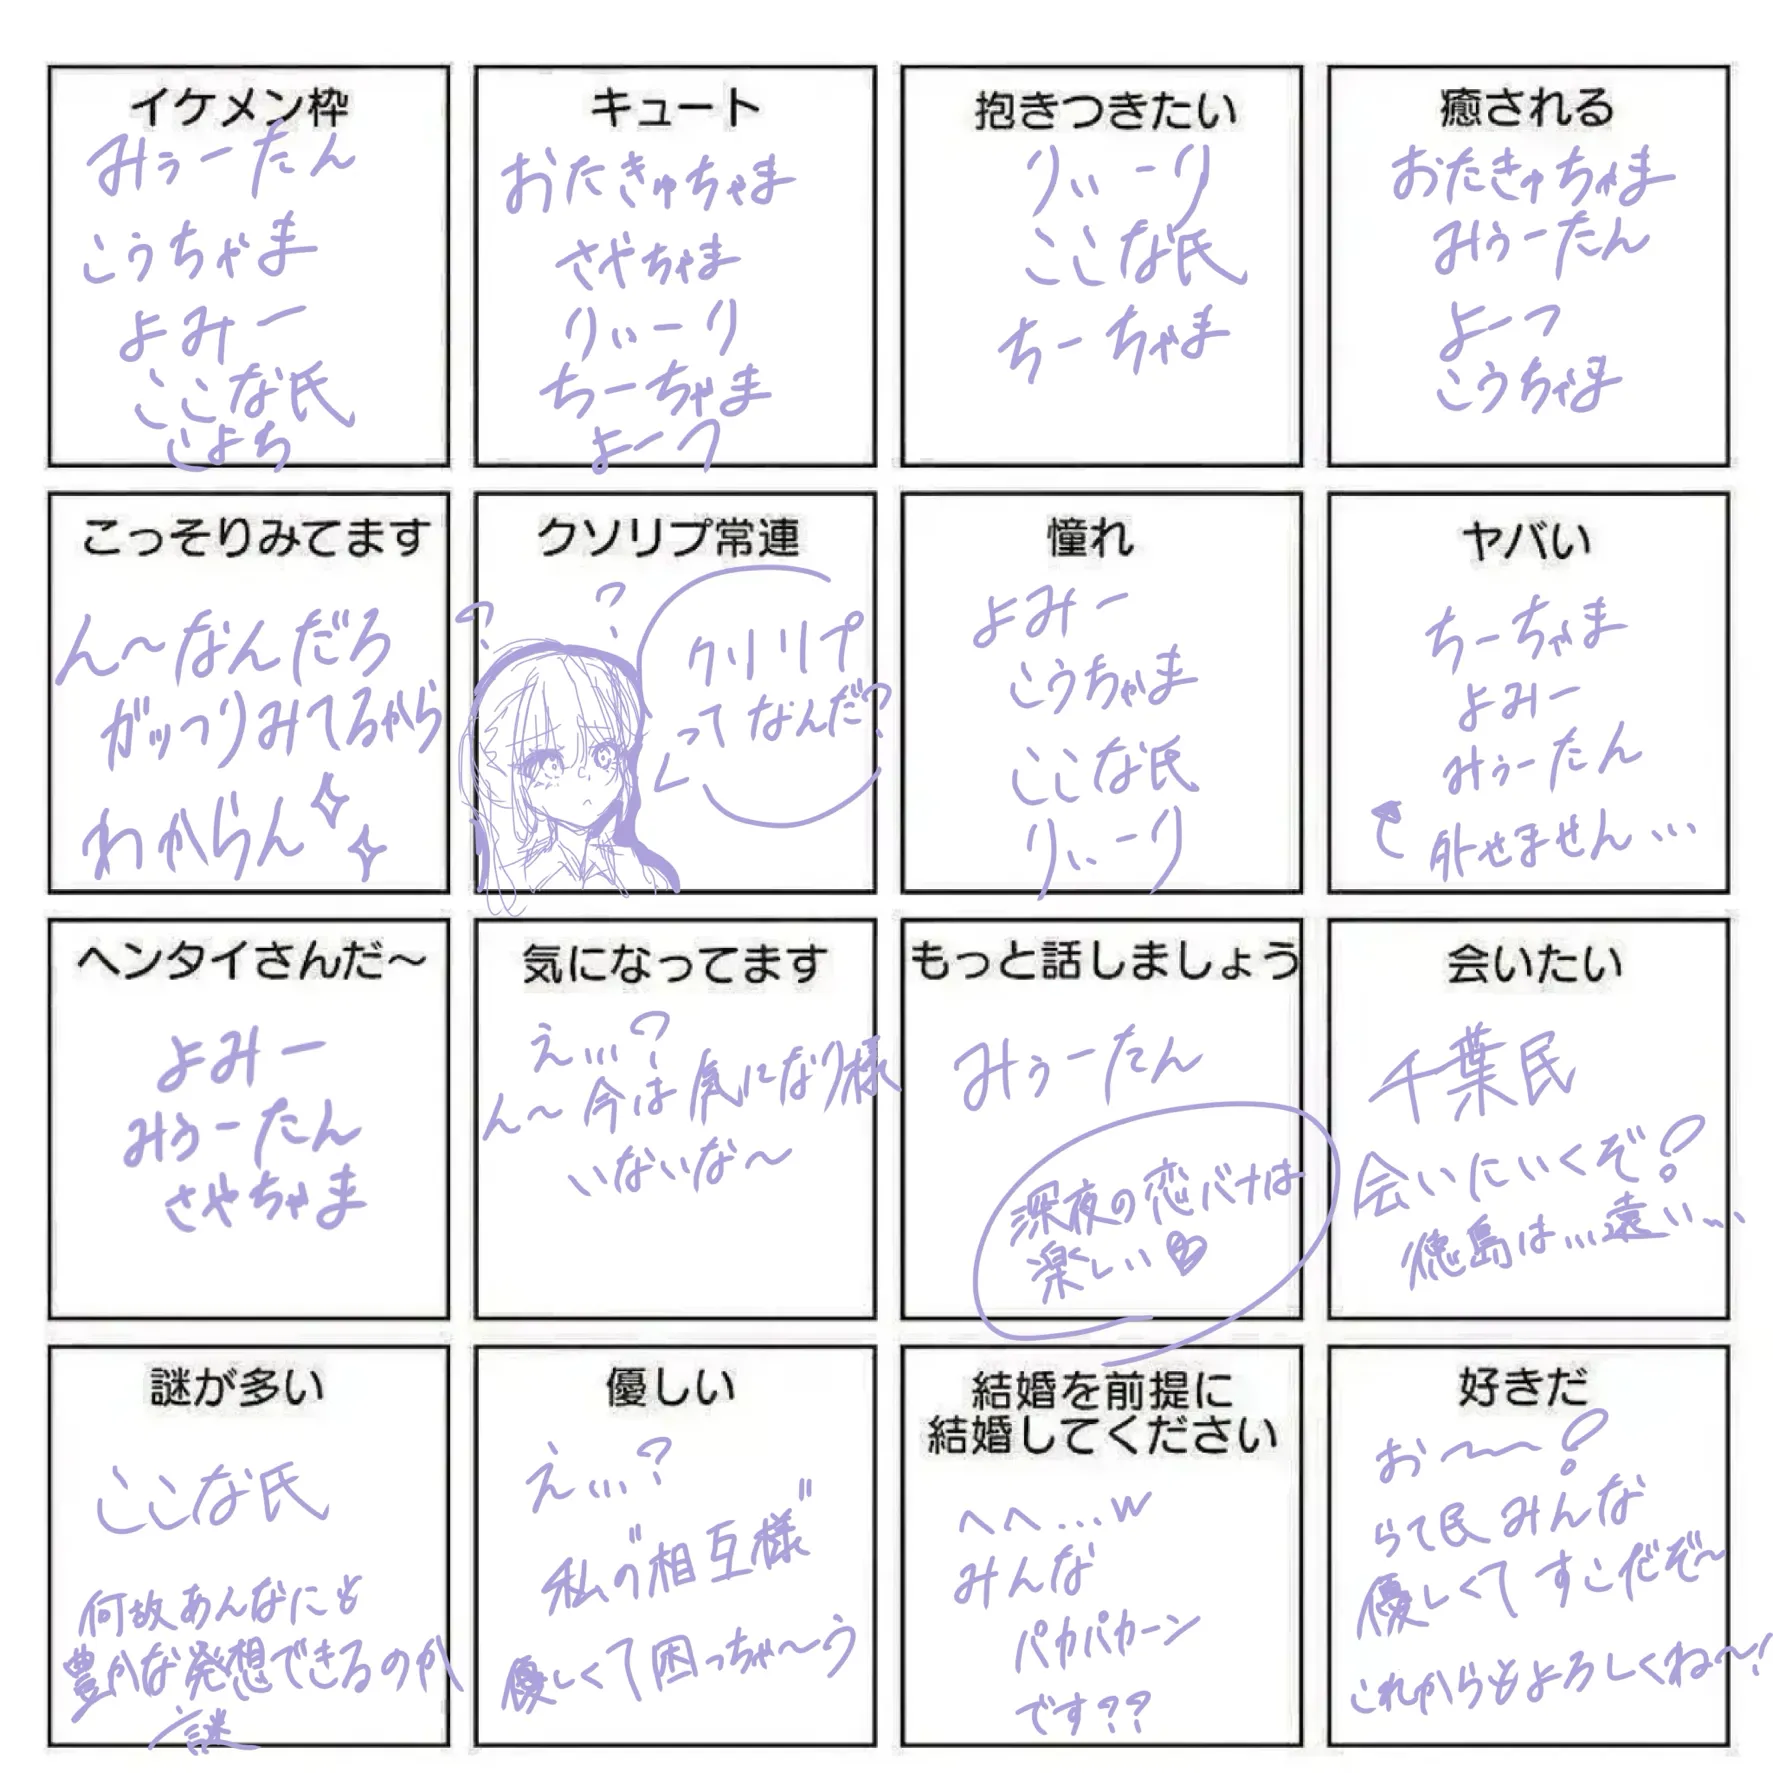 イケメン枠
みぅーたん
こうちゃま
よみー
ここな氏
こよち
キュート
おたきゅちゃま
さやちゃま
りぃーり
ちーちゃま
よーつ
抱きつきたい
りぃーり
ここな氏
ちーちゃま
癒される
おたきゅちゃま
みぅーたん
よーつ
こうちゃま
こっそりみてます
ん〜なんだろ
ガッつりみてるから
わからん
クソリプ常連
? ?
クソリプ
ってなんだ?
憧れ
よみー
こうちゃま
ここな氏
りぃーり
ヤバい
ちーちゃま
よみー
みぅーたん
外せません…
ヘンタイさんだ〜
よみー
みぅーたん
さやちゃま
気になってます
え…?
ん〜今は気になり様
いないな〜
もっと話しましょう
みぅーたん
深夜の恋バナは
楽しい
会いたい
千葉民
会いにいくぞ!
徳島は…遠い…
謎が多い
ここな氏
何故あんなにも
豊かな発想できるのか
謎
優しい
え…?
私の"相互様"
優しくて困っちゃ〜う
結婚を前提に
結婚してください
へへ…w
みんな
パカパカーン
です??
好きだ
お〜〜!
らて民みんな
優しくてすこだぞ〜
これからもよろしくね〜!